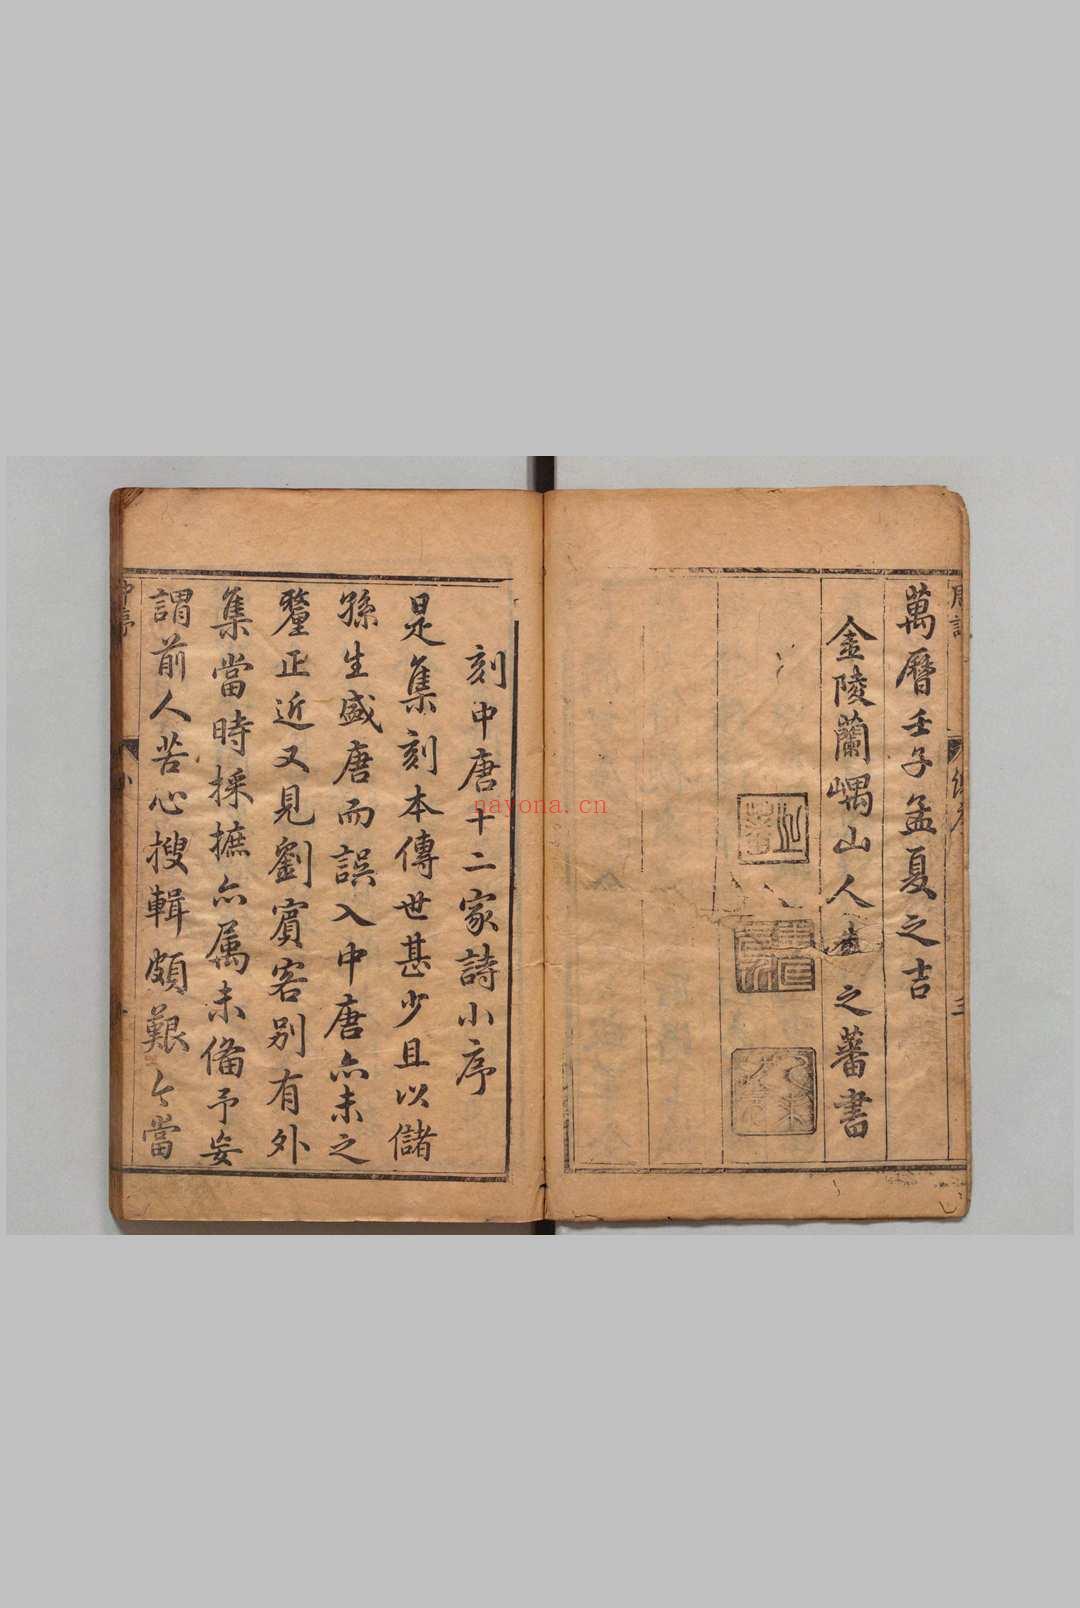 萬曆壬子孟夏之吉
金陵蘭嵎山人朱之蕃書
之蕃
刻中唐十二家詩小序
是集刻本傳世甚少且以儲
孫生盛唐而誤入中唐亦未之
釐正近又見劉賓客別有外
集當時採摭亦属未備予妄
謂前人苦心搜輯頗艱今當
nayona.cn